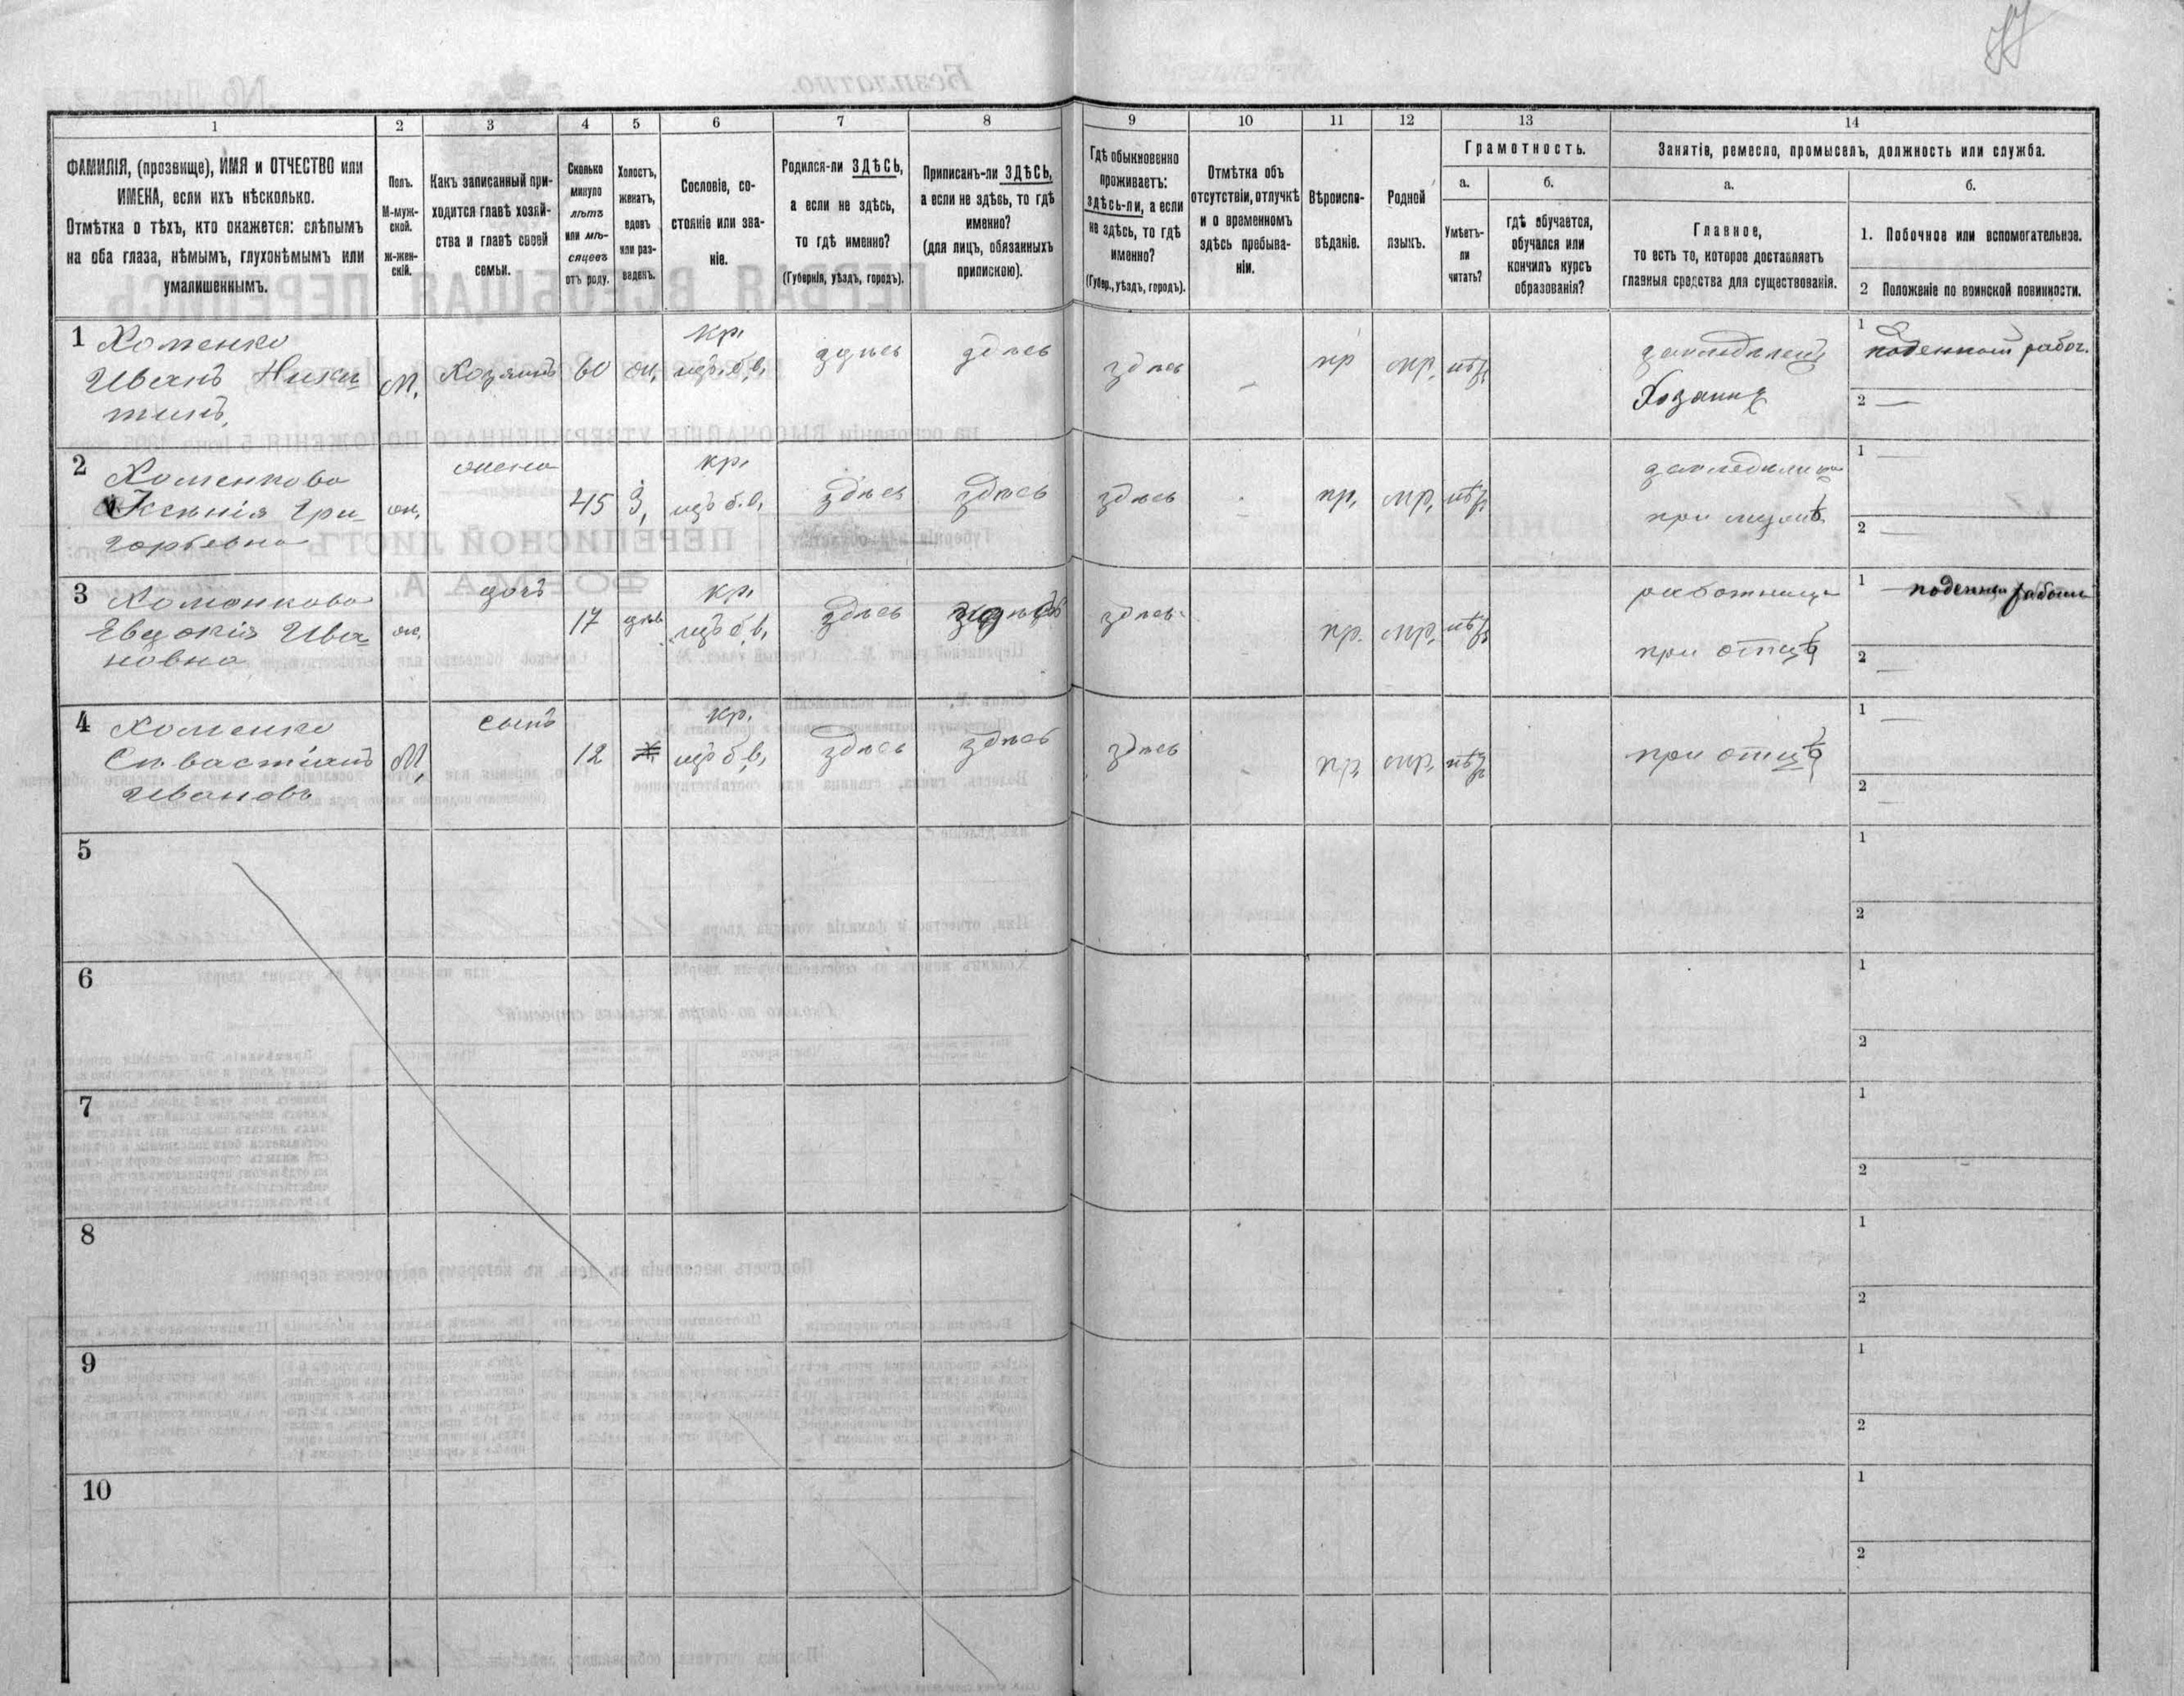 1
2
3
4
5
6
7
8
9
10
11
12
13
14
ФАМИЛІЯ, (прозвище), ИМЯ и ОТЧЕСТВО или
ИМЕНА, если ихъ нѣсколько.
Отмѣтка о тѣхъ, кто окажется: слѣпымъ
на оба глаза, нѣмымъ, глухонѣмымъ или
умалишеннымъ.
Полъ.
М-муж-
ской.
ж-жен-
скій.
Какъ записанный при-
ходится главѣ хозяй-
ства и главѣ своей
семьи.
Сколько
минуло
лѣтъ
или мѣ-
сяцевъ
отъ роду.
Холостъ,
женатъ,
вдовъ
или раз-
веденъ.
Сословіе, со-
стояніе или зва-
ніе.
Родился-ли ЗДѢСЬ,
а если не здѣсь,
то гдѣ именно?
(Губернія, уѣздъ, городъ).
Приписанъ-ли ЗДѢСЬ,
а если не здѣсь, то гдѣ
именно?
(для лицъ, обязанныхъ
припискою).
Гдѣ обыкновенно
проживаетъ:
здѣсь-ли, а если
не здѣсь, то гдѣ
именно?
(Губер., уѣздъ, городъ).
Отмѣтка объ
отсутствіи, отлучкѣ
и о временномъ
здѣсь пребыва-
ніи.
Вѣроиспо-
вѣданіе.
Родной
языкъ.
Грамотность.
а.
Умѣетъ-
ли
читать?
б.
гдѣ обучается,
обучался или
кончилъ курсъ
образованія?
Занятіе, ремесло, промыселъ, должность или служба.
а.
Главное,
то есть то, которое доставляетъ
главныя средства для существованія.
б.
1. Побочное или вспомогательное.
2 Положеніе по воинской повинности.
1 Хоменко
Иванъ Ники
тинъ,
М.
Хозяинъ
60
ж,
кр,
изъ б,в,
здѣсь
здѣсь
здѣсь
—
пр
мр,
нѣтъ
земледѣлецъ
Хозяинъ
1 поденный рабоч.
2 —
2 Хоменкова
Ксенія Гри-
горьевна
ж,
жена
45
З,
кр,
изъ б.в,
здѣсь
здѣсь
здѣсь
пр,
мр,
нѣтъ
при мужѣ
1 —
2 —
3 Хоменкова
Евдокія Ива
новна
ж,
дочь
17
дѣв
кр,
изъ б,в,
здѣсь
здѣсь
здѣсь
пр.
мр,
нѣтъ
работница
при отцѣ
1 —
2 —
4 Хоменко
Севастіанъ
Ивановъ
М,
сынъ
12
кр.
изъ б,в,
здѣсь
здѣсь
здѣсь
пр,
мр,
нѣтъ
при отцѣ
1 —
2 —
5
1
2
6
1
2
7
1
2
8
1
2
9
1
2
10
1
2